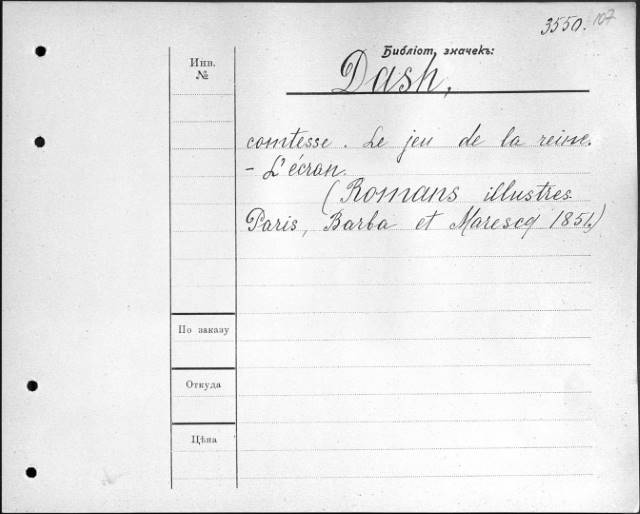 3550. 107
Библіот. значекъ:
Dash,
Инв.
№
comtesse. Le jeu de la reine.
- L'écran.
(Romans illustres
Paris, Barba et Marescq 1851.)
По заказу
Откуда
Цѣна